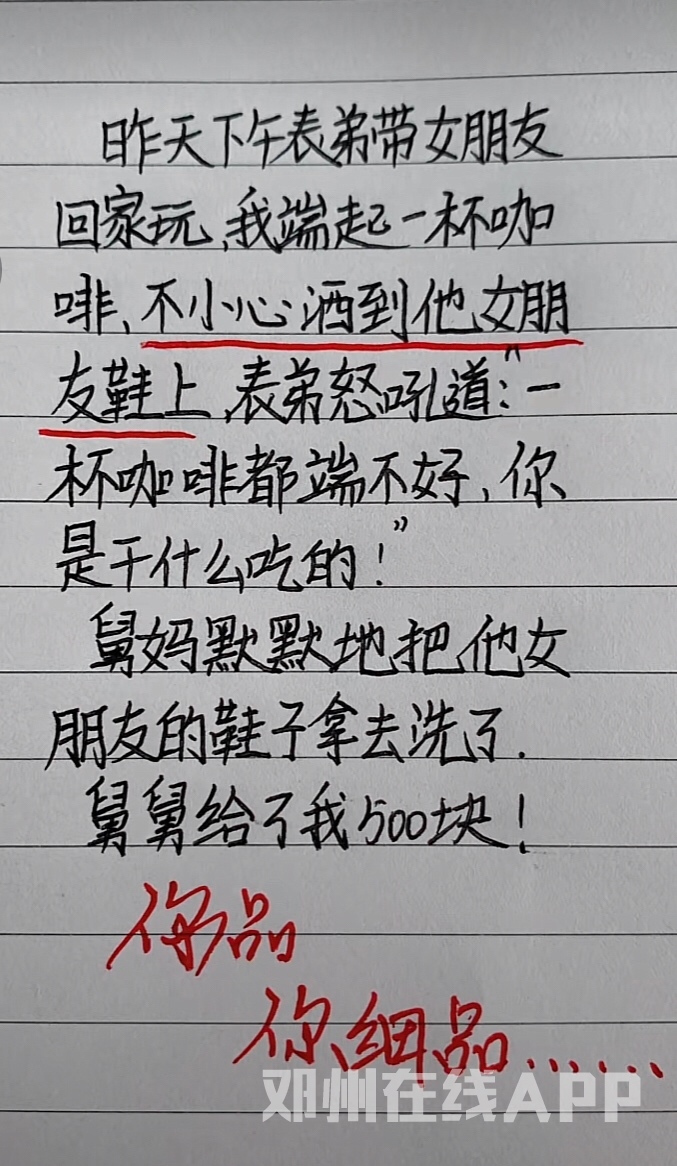 昨天下午表弟带女朋友
回家玩,我端起一杯咖
啡、不小心洒到他女朋
友鞋上,表弟怒吼道:“一
杯咖啡都端不好、你
是干什么吃的!”
舅妈默默地把他女
朋友的鞋子拿去洗了.
舅舅给了我500块!
你品
你细品......
邓州在线APP